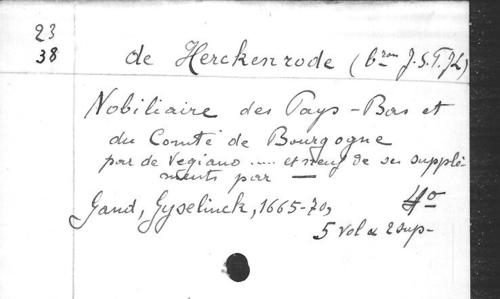 23
38
de Herckenrode (bron J.S.F.JL)
Nobiliaire des Pays-Bas et
du Comté de Bourgogne
par de Vegiano ..... et neuf de ses supplé-
ments par —
Gand, Gyselinck, 1665-70, 4o
5 vol & 2 sup-